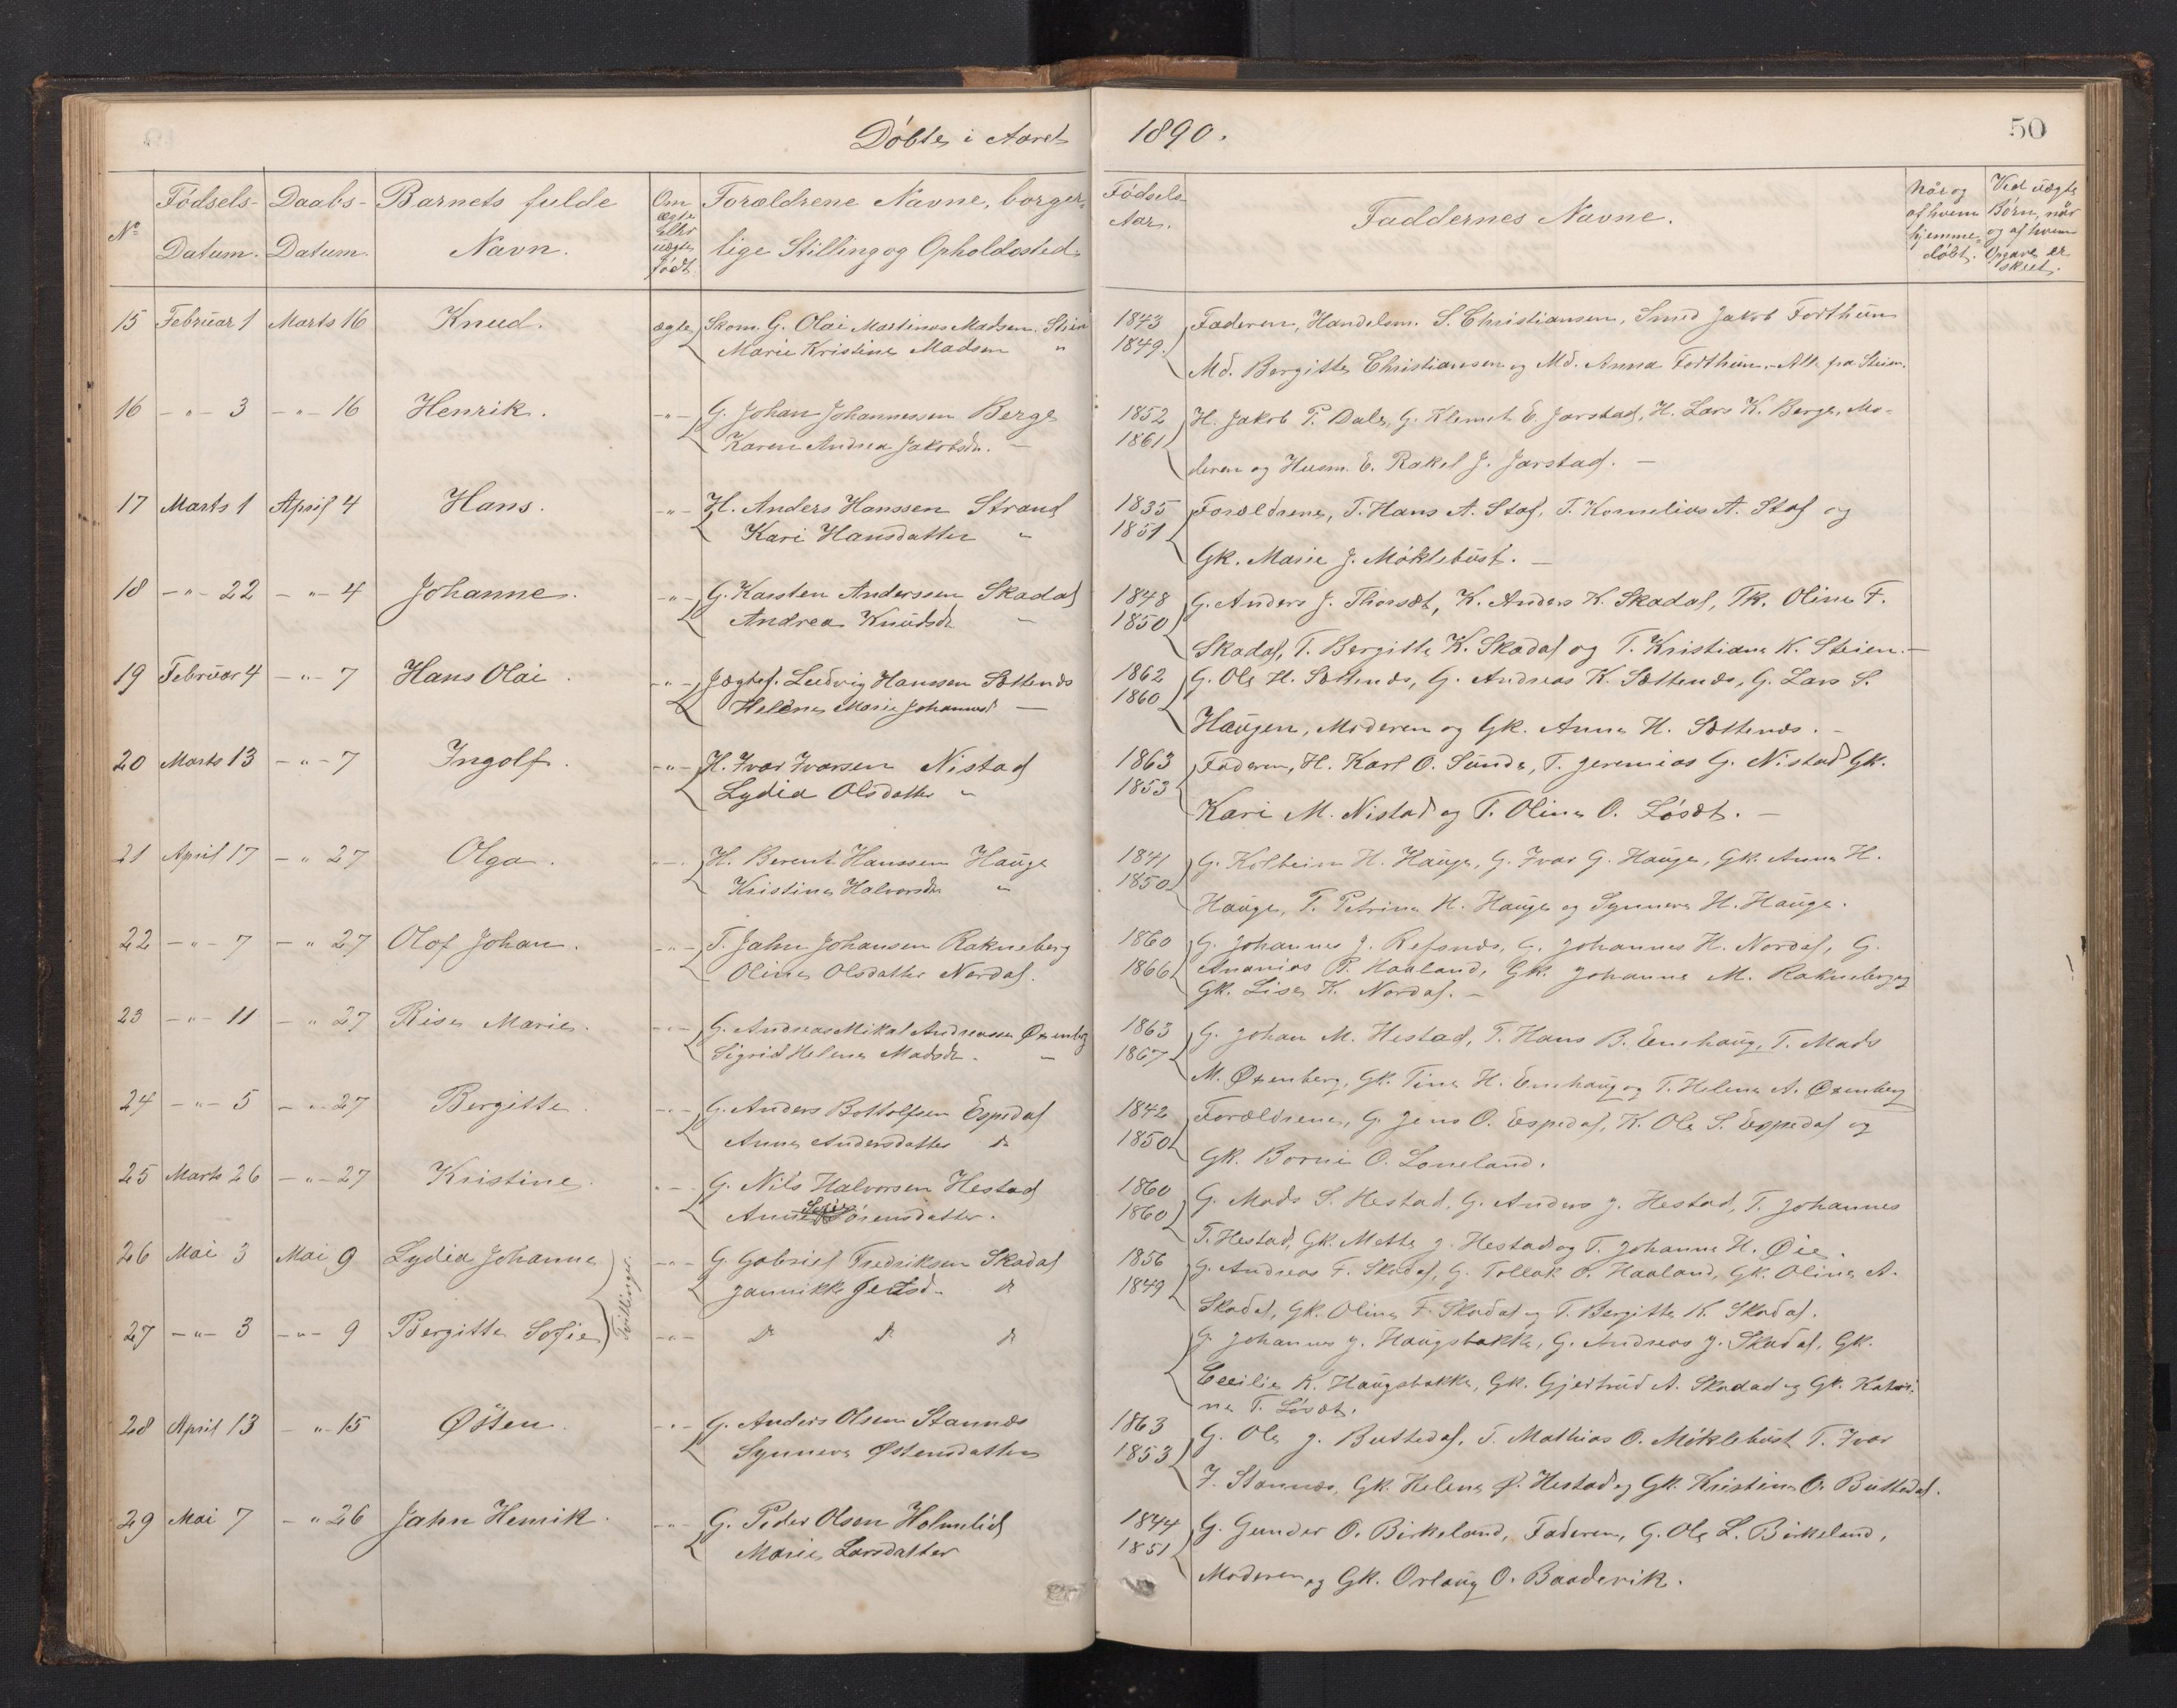 Døbte i Aaret 1890.
50
No
Fødsels-Datum.
Daabs-Datum.
Barnets fulde Navn.
Om ægte eller uægte født.
Forældrene Navne, borgerlige Stilling og Opholdssted.
Fødsels Aar.
Faddernes Navne.
Når og af hvem hjemmedøbt.
Ved uægte Børn, når og af hvem Opgave er skeet.
15 Februar 1 Marts 16 Knud. ægte Skom. G. Olai Martinus Madsen. Steien 1843 Faderen, Handelsm. S. Christiansen, Smed Jakob Forthun
Marie Kristine Madsen " 1849. Md. Bergitte Christiansen og Md. Anna Forthun. Alle fra Steien.
16 -"- 3 -"- 16 Henrik. -"- G. Johan Johannessen Berge 1852 H. Jakob P. Dale, G. Klemet E. Jarstad, H. Lars K. Berge, Mo-
Karen Andrea Jakobsdr. - 1861 deren og Husm. E. Rakel J. Jarstad. -
17 Marts 1 April 4 Hans. -"- H. Anders Hanssen Strand 1835 Forældrene, T. Hans A. Staf, T. Kornelius A. Staf og
Kari Hansdatter " 1851 Gk. Marie J. Møklebust. -
18 -"- 22 -"- 4 Johanne. -"- G. Karsten Anderssen Skadal 1848 G. Anders J. Thorsæt, K. Anders K. Skadal, Tk. Oline F.
Andrea Knudsdr - 1850 Skadal, T. Bergitte K. Skadal og T. Kristiane K. Steien. -
19 Februar 4 -"- 7 Hans Olai. -"- Jægtef. Ludvig Hanssen Sættenes 1862 G. Ole H. Sættenes, G. Andreas K. Sættenes, G. Lars S.
Helene Marie Johannesd - 1860 Haugen, Moderen og Gk. Anna H. Sættenes. -
20 Marts 13 -"- 7 Ingolf. -"- H. Ivar Ivarsen Nistad 1863 Faderen, H. Karl O. Sunde, T. Jeremias G. Nistad Gk.
Lydia Olsdatter " 1853 Kari M. Nistad og T. Oline O. Løsæt. -
21 April 17 -"- 27 Olga. -"- H. Berent Hanssen Hauge 1841 G. Kolbein H. Hauge, G. Ivar G. Hauge, Gk. Anna H.
Kristine Halvorsdr " 1850 Hauge, T. Petrine H. Hauge og Synneve H. Hauge.
22 -"- 7 -"- 27 Olof Johan. -"- T. Jahn Johansen Rakneberg 1860 G. Johannes J. Refsnes, G. Johannes H. Nordal, G.
Oline Olsdatter Nordal. 1866 Ananias P. Haaland, Gk. Johanne M. Rakneberg og
Gk. Lise K. Nordal. -
23 -"- 11 -"- 27 Rise Marie. -"- G. Andreas Mikal Andreassen Øxenberg 1863 G. Johan M. Hestad, T. Hans B. Enehaug, T. Mads
Sigrid Helene Madsdr. - 1867 M. Øxenberg, Gk. Tine H. Enehaug og T. Helene A. Øxenberg
24 -"- 5 -"- 27 Bergitte. -"- G. Anders Bottolfsen Espedal 1842 Forældrene, G. Jens O. Espedal, K. Ole S. Espedal og
Anne Andersdatter do 1850 Gk. Borni O. Loneland.
25 Marts 26 -"- 27 Kristine. -"- G. Nils Halvorsen Hestad 1860 G. Mads S. Hestad, G. Anders J. Hestad, T. Johannes
Anne Sørensdatter. 1860 T. Hestad, Gk. Mette J. Hestad og T. Johanne H. Øie.
26 Mai 3 Mai 9 Lydia Johanne -"- G. Gabriel Fredriksen Skadal 1856 G. Andreas F. Skadal, G. Tollak O. Haaland, Gk. Oline A.
Jannikke Jetsd. do 1849 Skadal, Gk. Oline F. Skadal og T. Bergitte K. Skadal.
Tvillinger
27 -"- 3 -"- 9 Bergitte Sofie -"- do do do G. Johannes J. Haugsbakke, G. Andreas J. Skadal, Gk.
Cecilie K. Haugsbakke, Gk. Gjertrud A. Skadal og Gk. Katri-
ne T. Løsæt.
28 April 13 -"- 15 Østen. -"- G. Anders Olsen Stannæs 1863 G. Ole J. Buttedal, T. Mathias O. Møklebust T. Ivar
Synneve Østensdatter 1853 J. Stannæs, Gk. Helene P. Hestad og Gk. Kristine O. Buttedal.
29 Mai 7 -"- 26 Jahn Henrik. -"- G. Peder Olsen Holmelid 1844 G. Gunder O. Birkeland, Faderen, G. Ole L. Birkeland,
Marie Larsdatter 1851 Moderen og Gk. Orlaug O. Baadevik.